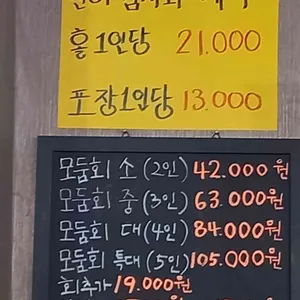 홀1인당 21,000
포장1인당 13,000
모둠회 소(2인) 42,000원
모둠회 중(3인) 63,000원
모둠회 대(4인) 84,000원
모둠회 특대(5인) 105,000원
회추가 19,000원